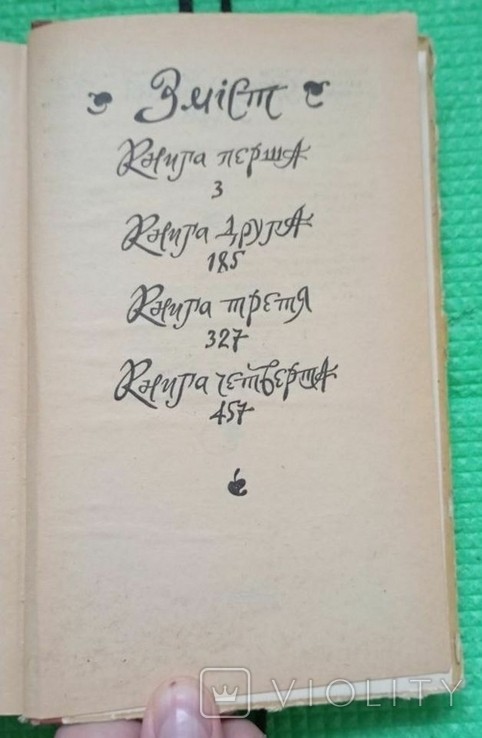 Зміст
Книга перша
3
Книга друга
185
Книга третя
327
Книга четверта
457
VIOLITY